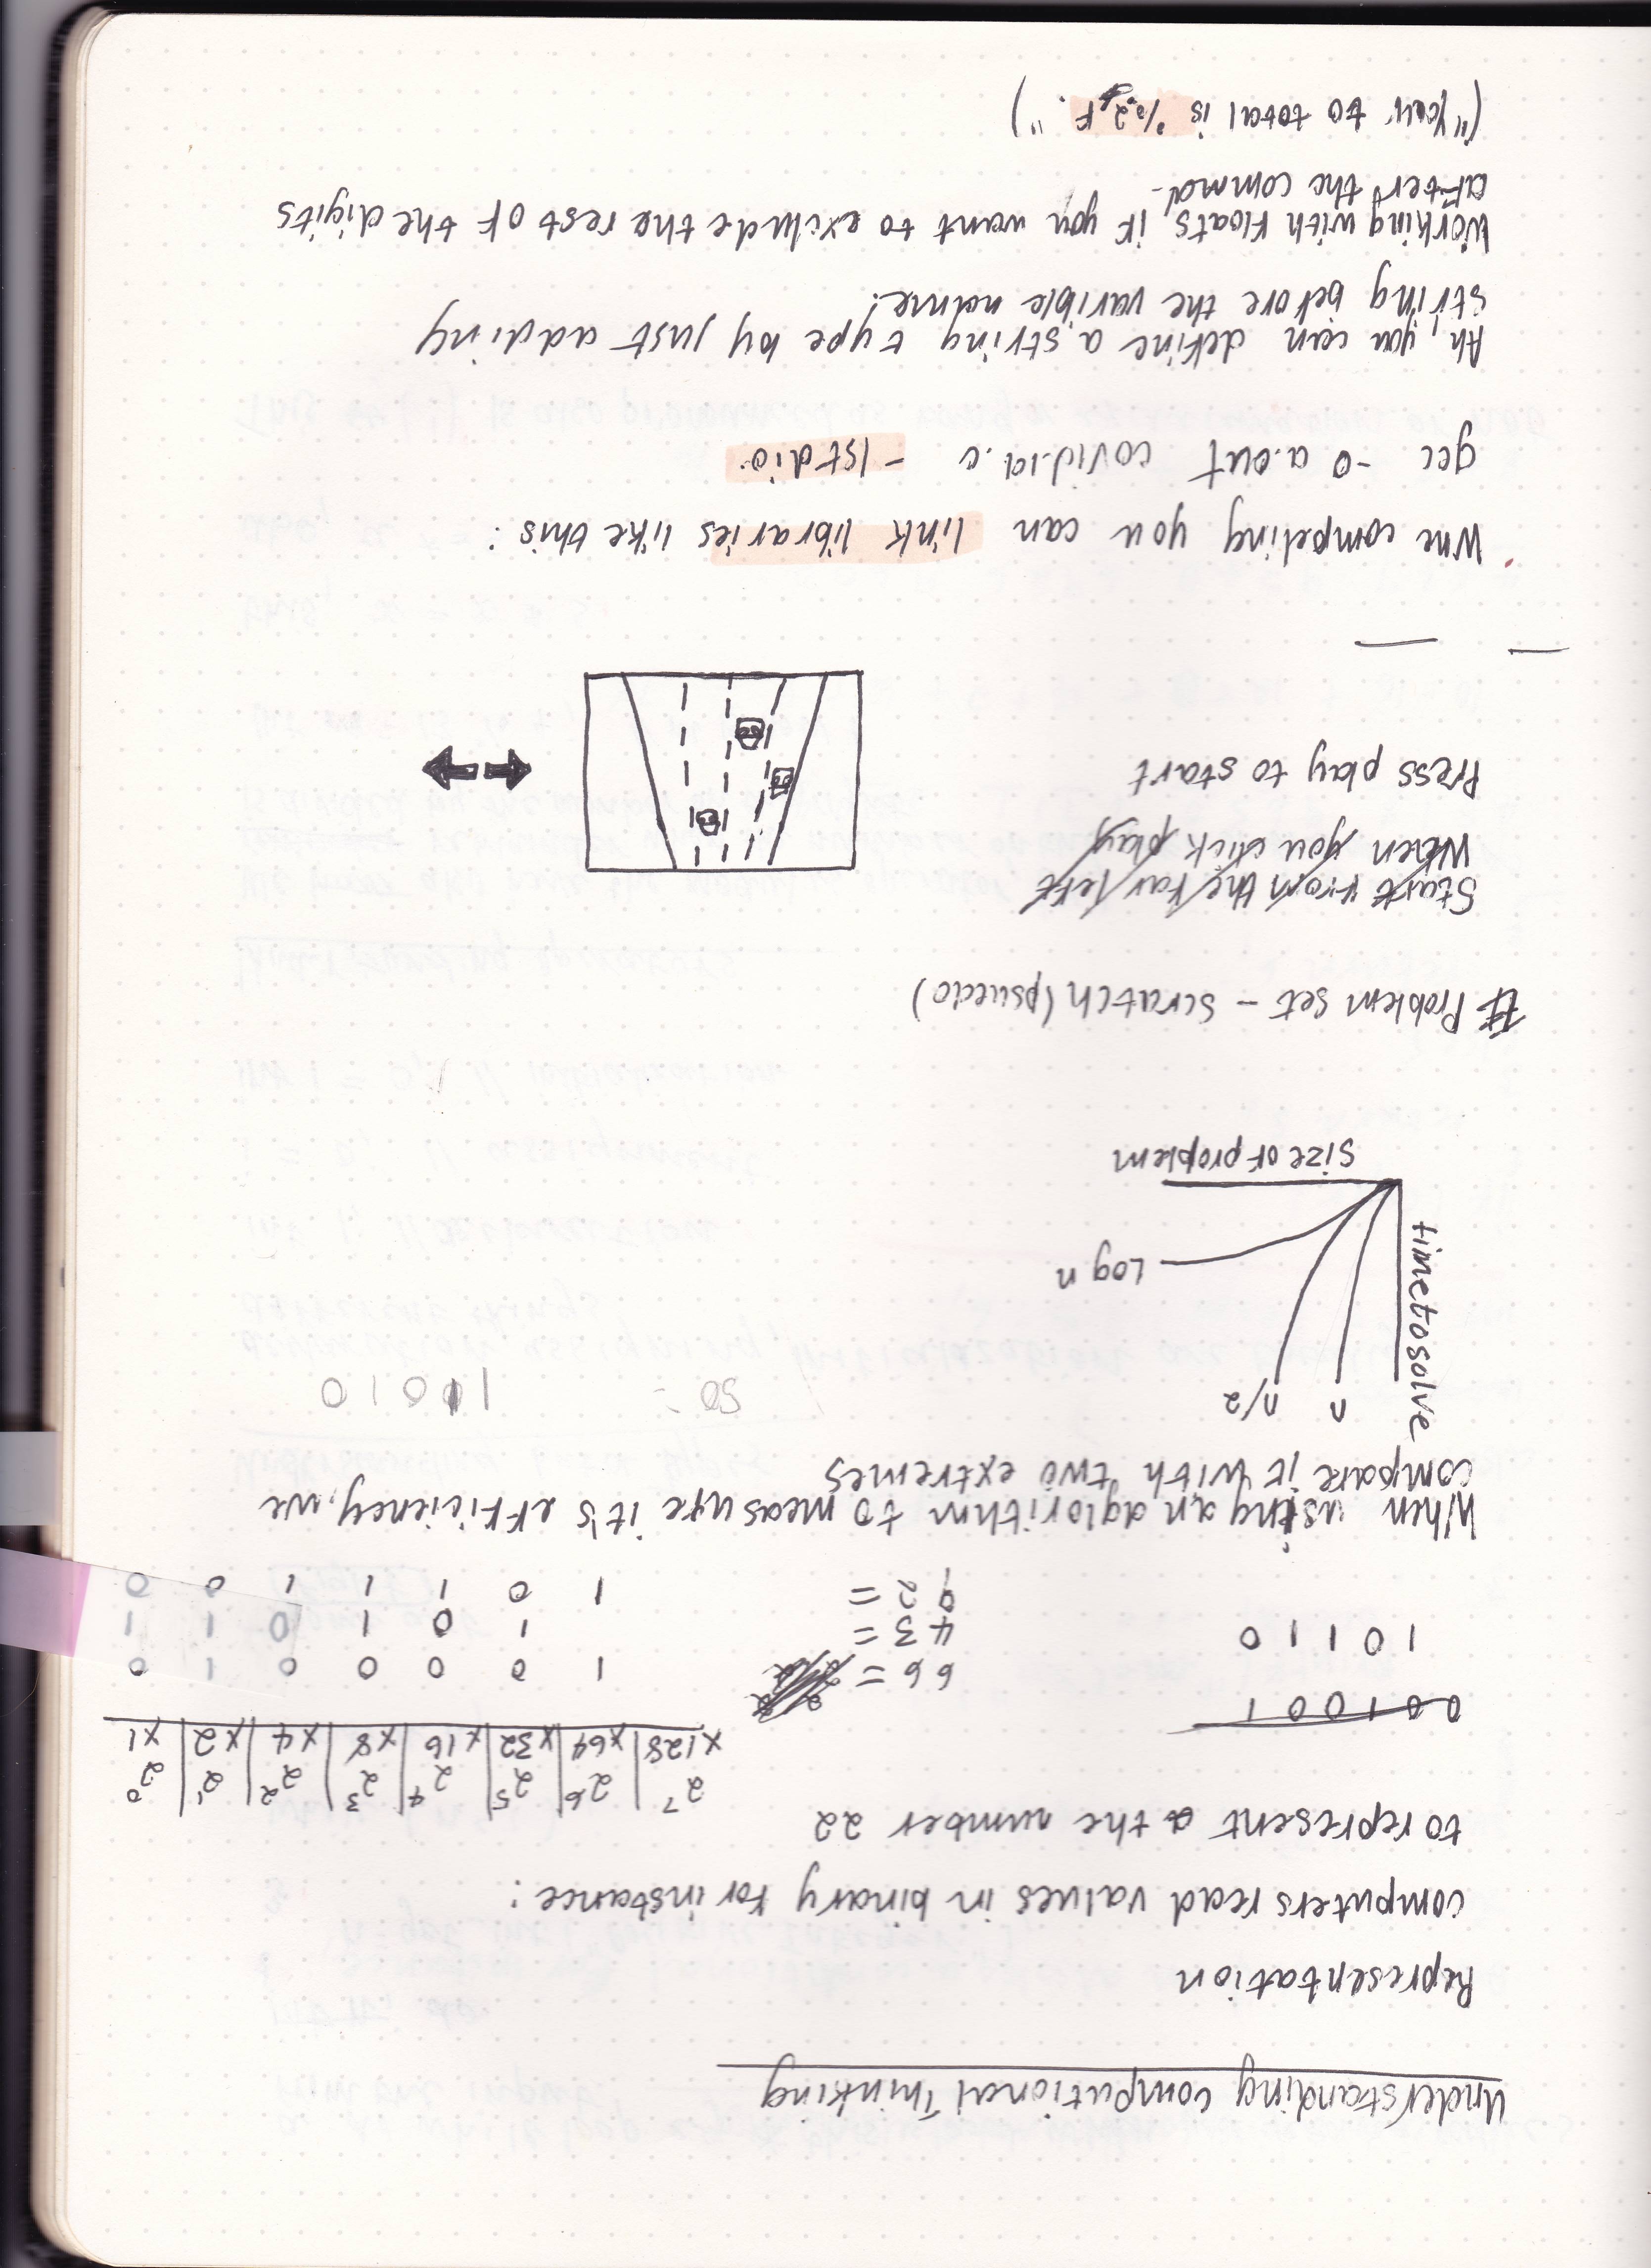 Understanding Computional Thinking
Representation
computers read values in binary for instance:
to represent a the number 22
2⁷ | 2⁶ | 2⁵ | 2⁴ | 2³ | 2² | 2¹ | 2⁰
x128 | x64 | x32 | x16 | x8 | x4 | x2 | x1
001001
10110
66 = 1 0 0 0 0 1 0
43 = 1 0 1 0 1 1
92 = 1 0 1 1 1 0 0
When using an aglorithm to measure it's efficiency, we
compare it with two extremes
50 = 1 1 0 1 0
time to solve
n
n/2
Log n
size of problem
# Problem set - Scratch (psuedo)
Start from the far left
When you click play
Press play to start
Wne compeling you can link libraries like this:
gcc -o a.out covid.19.c -lstdio
Ah, you can define a string type by just adding
string before the varible name!
Working with floats, if you want to exclude the rest of the digits
after the comma-
("Your to total is %.2f.")